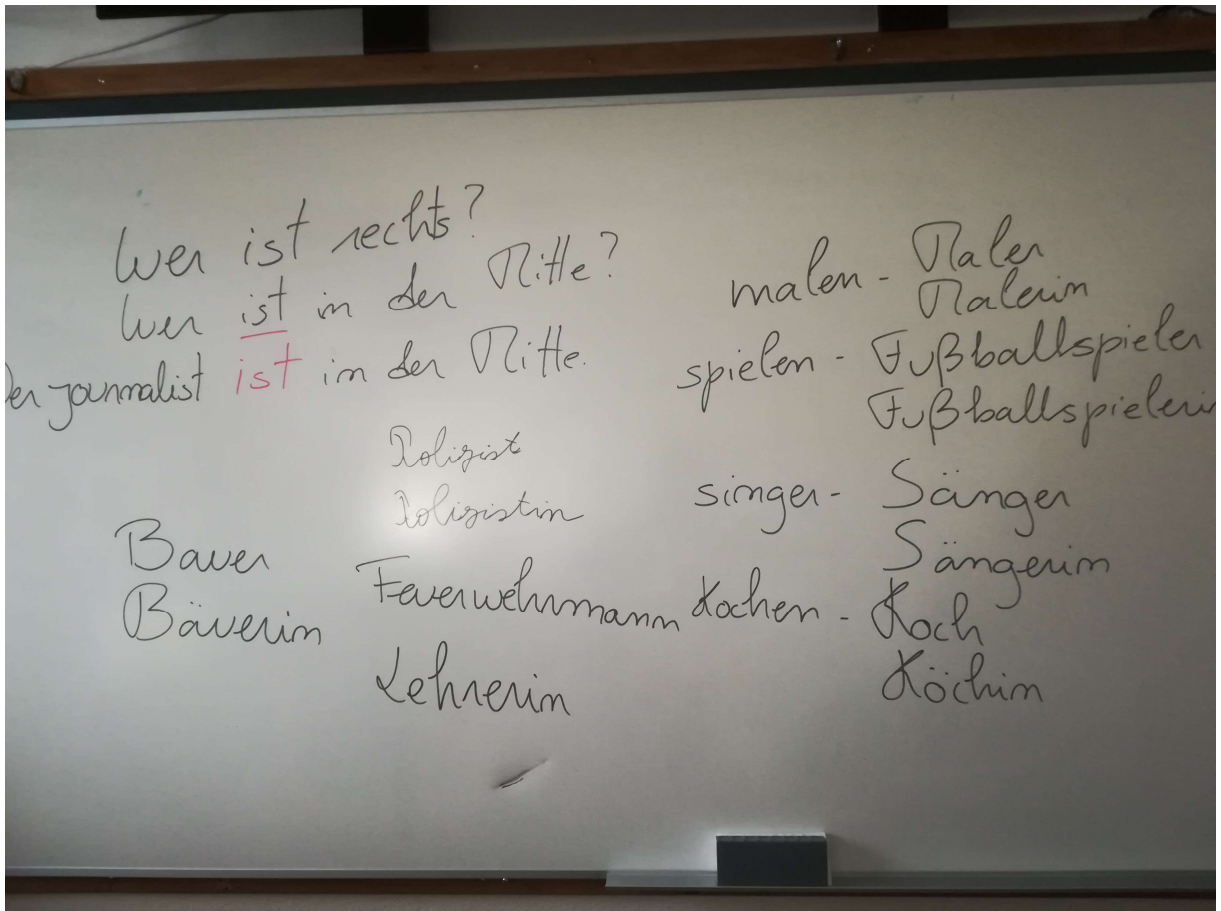 Wer ist rechts?
Wer ist in der Mitte?
Der journalist ist in der Mitte.
Polizist
Polizistin
Bauer
Bäuerin
Feuerwehrmann
Lehrerin
malen - Maler
Malerin
spielen - Fußballspieler
Fußballspielerin
singer - Sänger
Sängerin
Kochen - Koch
Köchin